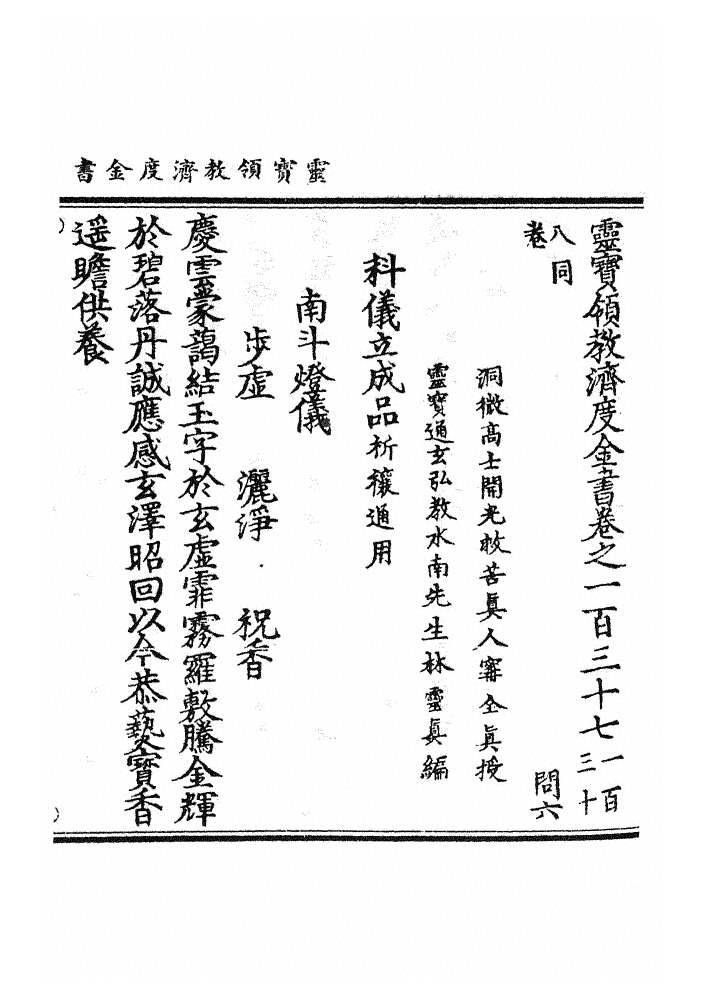 靈寶領教濟度金書
靈寶領教濟度金書卷之一百三十七一百三十
八同卷
問六
洞微高士開光救苦真人寗全真授
靈寶通玄弘教水南先生林靈真編
科儀立成品祈禳通用
南斗燈儀
步虛 灑淨 祝香
慶雲蒙藹結玉字於玄虛霏霧羅敷騰金輝
於碧落丹誠應感玄澤昭回以今恭爇寶香
遥瞻供養